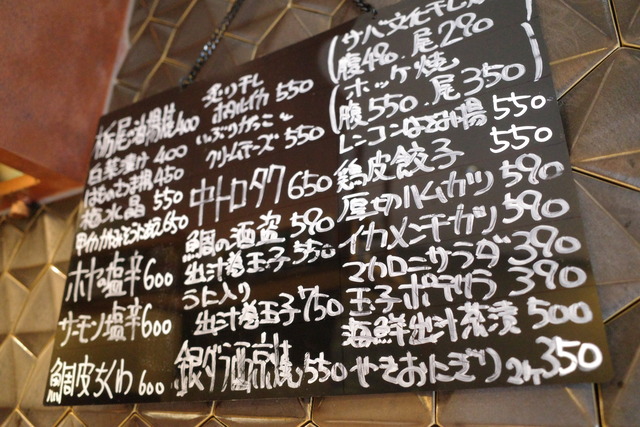 栃尾の油揚焼 400
白菜漬け 400
はものわた揚 450
梅水晶 550
650
ホヤの塩辛 600
サーモン塩辛 600
鯛皮ちくわ 600
炙り干し
ホタルイカ 550
いぶりがっこと
クリームチーズ 550
中トロタク 650
鯛の酒盗 590
出汁巻玉子 550
うに入り
出汁巻玉子 750
銀ダラ西京焼 550
サバ文化干し
腹490. 尾290
ホッケ焼
腹550. 尾350
レンコンはさみ揚 550
鶏皮餃子 550
厚切ハムカツ 590
イカメンチカツ 590
マカロニサラダ 390
玉子ポテサラ 390
海鮮出汁茶漬 500
やきおにぎり 2ケ 350